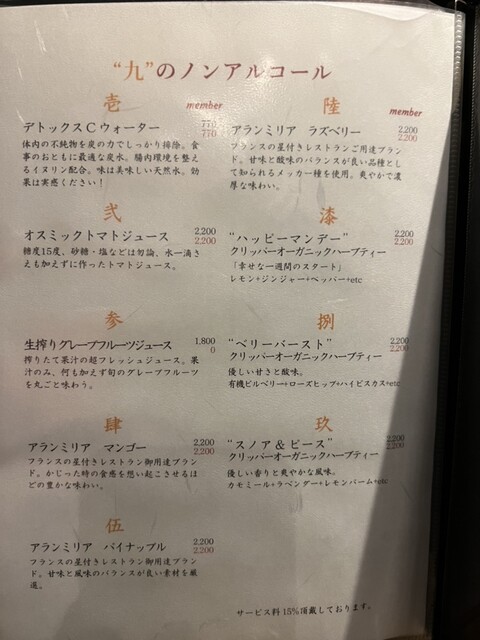 “九”のノンアルコール
壱
member
デトックスCウォーター 770
770
体内の不純物を炭の力でしっかり排除。食
事のおともに最適な炭水。腸内環境を整え
るイヌリン配合。味は美味しい天然水。効
果は実感ください！
弐
オスミックトマトジュース 2,200
2,200
糖度15度、砂糖・塩などは勿論、水一滴さ
えも加えずに作ったトマトジュース。
参
生搾りグレープフルーツジュース 1,800
0
搾りたて果汁の超フレッシュジュース。果
汁のみ、何も加えず旬のグレープフルーツ
を丸ごと味わう。
肆
アランミリア マンゴー 2,200
2,200
フランスの星付きレストラン御用達ブラン
ド。かじった時の食感を想い起こさせるほ
どの豊かな味わい。
伍
アランミリア パイナップル 2,200
2,200
フランスの星付きレストラン御用達ブラン
ド。甘味と風味のバランスが良い素材を厳
選。
陸
member
アランミリア ラズベリー 2,200
2,200
フランスの星付きレストランご用達ブラン
ド。甘味と酸味のバランスが良い品種とし
て知られるメッカー種を使用。爽やかで濃
厚な味わい。
漆
“ハッピーマンデー” 2,200
クリッパーオーガニックハーブティー 2,200
「幸せな一週間のスタート」
レモン+ジンジャー+ペッパー+etc
捌
“ベリーバースト” 2,200
クリッパーオーガニックハーブティー 2,200
優しい甘さと酸味。
有機ビルベリー+ローズヒップ+ハイビスカス+etc
玖
“スノア＆ピース” 2,200
クリッパーオーガニックハーブティー 2,200
優しい香りと爽やかな風味。
カモミール+ラベンダー+レモンバーム+etc
サービス料15%頂戴しております。